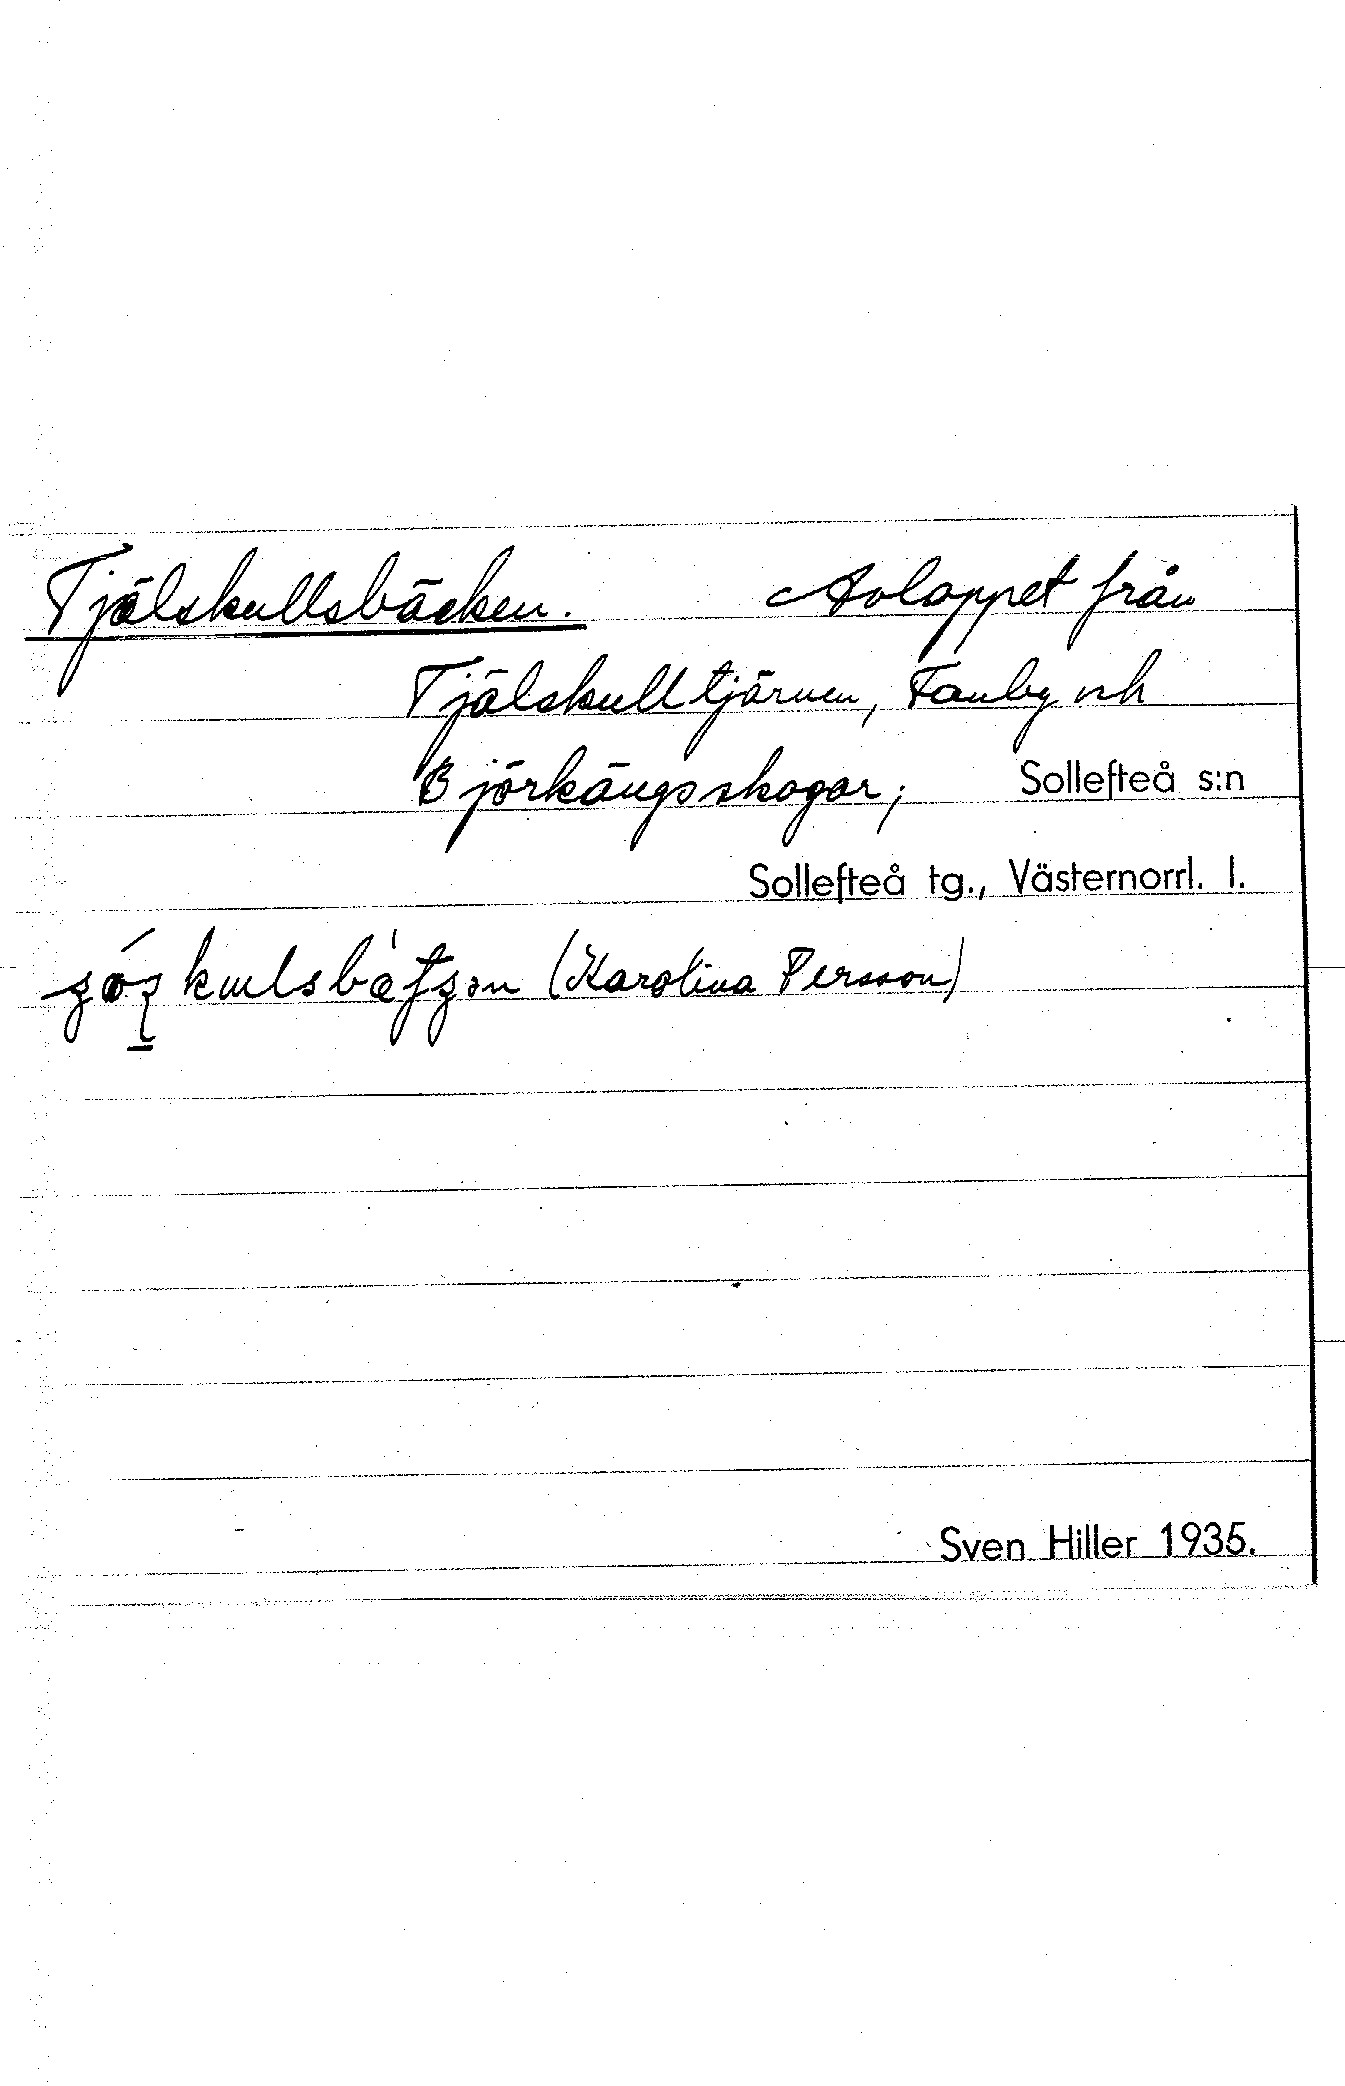 Tjälskullsbäcken. Avloppet från
Tjälskulltjärnen, Fanby och
Björkängsskogar; Sollefteå s:n
Sollefteå tg., Västernorrl. l.
(Karolina Persson)
Sven Hiller 1935.